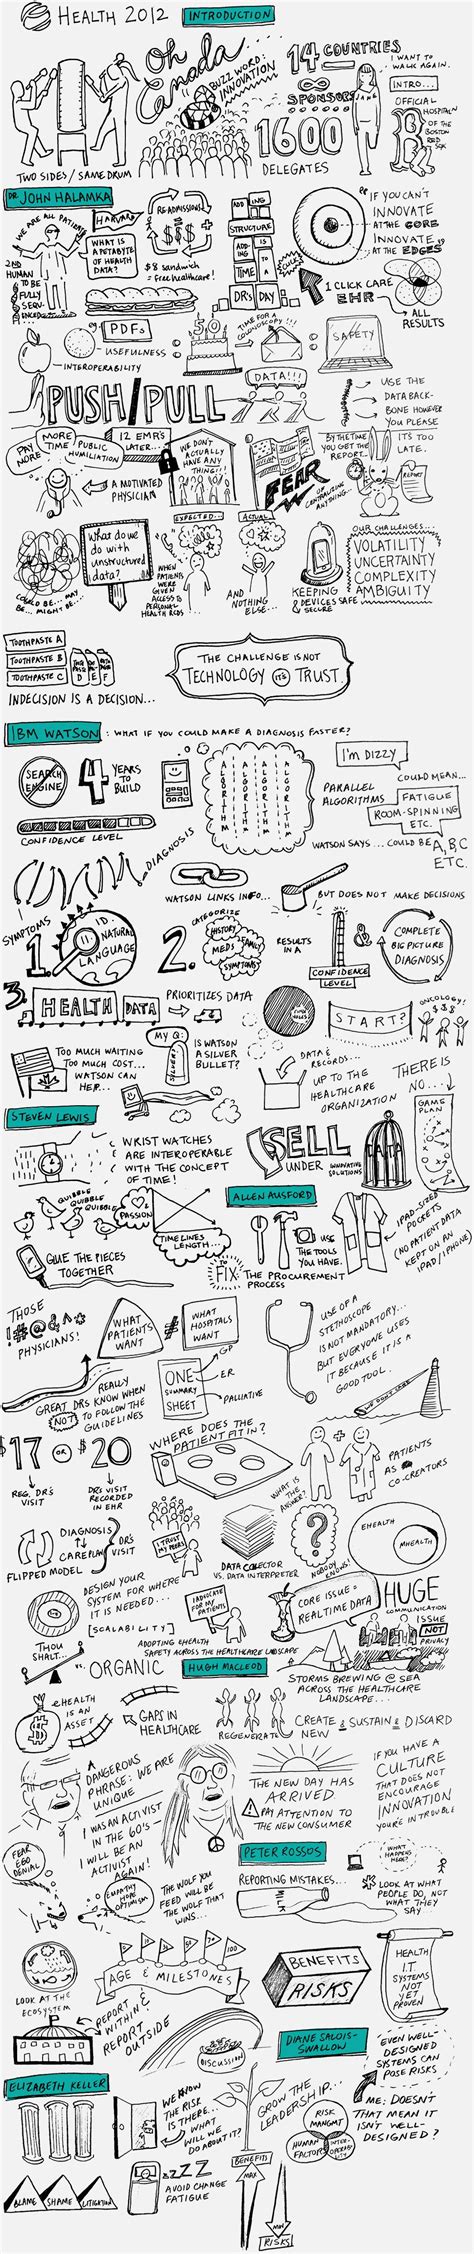 HEALTH 2012
INTRODUCTION
Oh
Canada
BUZZ WORD:
INNOVATION
14 COUNTRIES
∞
SPONSORS
1600
DELEGATES
JANE
I WANT TO
WALK AGAIN.
INTRO...
OFFICIAL
HOSPITAL
OF THE
BOSTON
RED
SOX
B
TWO SIDES / SAME DRUM
DR. JOHN HALAMKA
WE ARE ALL PATIENTS
HARVARD
WHAT IS
A PETABYTE
OF HEALTH
DATA?
2ND
HUMAN
TO BE
FULLY
SEQU-
ENCED
RE-ADMISSIONS
$$$
$8 sandwich
= free healthcare!
ADD ING
STRUCTURE
ADD-
ING IS
TIME TO A
DR's DAY
IF YOU CAN'T
INNOVATE
AT THE CORE
INNOVATE
AT THE EDGES"
1 CLICK CARE
EHR
ALL
RESULTS
eg. PDFs
USEFULNESS
INTEROPERABILITY
50
TIME FOR A
COLONOSCOPY!!!
SAFETY
PUSH/PULL
DATA!!!
USE THE
DATA BACK-
BONE HOWEVER
YOU PLEASE
PAY
MORE
MORE
TIME
PUBLIC
HUMILIATION
12 EMR's
LATER...
A MOTIVATED
PHYSICIAN
WE DON'T
ACTUALLY
HAVE ANY
THING!!!
FEAR
OF
CENTRALIZING
ANYTHING...
BY THE TIME
YOU GET THE
REPORT...
IT'S TOO
LATE.
REPORT
COULD BE... MAY
BE... MIGHT BE...
What do we
do with
unstructured
data?
EXPECTED...
WHEN
PATIENTS
WERE
GIVEN
ACCESS TO
PERSONAL
HEALTH RCDS
ACTUAL
AND
NOTHING
ELSE...
KEEPING
DEVICES SAFE
& SECURE
OUR CHALLENGES...
VOLATILITY
UNCERTAINTY
COMPLEXITY
AMBIGUITY
TOOTHPASTE A
TOOTHPASTE B
TOOTHPASTE C
D E F
INDECISION IS A DECISION...
THE CHALLENGE IS NOT
TECHNOLOGY IT'S TRUST.
IBM WATSON
: WHAT IF YOU COULD MAKE A DIAGNOSIS FASTER?
SEARCH
ENGINE
4 YEARS
TO BUILD
CONFIDENCE LEVEL
ALGORITHM
ALGORITHM
ALGORITHM
ALGORITHM
I'm DIZZY
COULD MEAN...
PARALLEL
ALGORITHMS
FATIGUE
ROOM-SPINNING
ETC.
WATSON SAYS... COULD BE A, B, C
ETC.
SYMPTOMS
DIAGNOSIS
WATSON LINKS INFO...
BUT DOES NOT MAKE DECISIONS
1.
I.D.
NATURAL
LANGUAGE
2.
CATEGORIZE
HISTORY
MEDS
FAMILY
SYMPTOMS
RESULTS
IN A
CONFIDENCE
LEVEL
&
COMPLETE
BIG PICTURE
DIAGNOSIS
3.
HEALTH DATA
PRIORITIZES DATA
START?
ONCOLOGY!
$$$
TOO MUCH WAITING
TOO MUCH COST...
WATSON CAN
HELP...
MY Q:
SILVER?
IS WATSON
A SILVER
BULLET?
DATA &
RECORDS...
UP TO THE
HEALTHCARE
ORGANIZATION
THERE IS
NO...
GAME
PLAN
STEVEN LEWIS
WRIST WATCHES
ARE INTEROPERABLE
WITH THE CONCEPT
OF TIME!
SELL
UNDER INNOVATIVE
SOLUTIONS
DATA
QUIBBLE
QUIBBLE
QUIBBLE
PASSION
TIMELINES
LENGTH...
ALLEN AUSFORD
USE
THE TOOLS
YOU HAVE.
IPAD-SIZED
POCKETS
(NO PATIENT DATA
KEPT ON AN
IPAD/IPHONE)
GLUE THE PIECES
TOGETHER
TO
FIX: THE PROCUREMENT
PROCESS
THOSE
!#@&^*
PHYSICIANS!
WHAT
PATIENTS
WANT
≠
WHAT
HOSPITALS
WANT
USE OF A
STETHOSCOPE
IS NOT
MANDATORY...
BUT EVERYONE USES
IT BECAUSE IT IS A
GOOD TOOL.
REALLY
GREAT DRs KNOW WHEN
NOT TO FOLLOW THE
GUIDELINES
ONE
SUMMARY
SHEET
GP
ER
PALLIATIVE
$17 OR $20
REG. DR's
VISIT
DR's VISIT
RECORDED
IN EHR
WHERE DOES THE
PATIENT FIT IN?
PATIENTS
AS
CO-CREATORS
DIAGNOSIS
CAREPLAN
DR's
VISIT
FLIPPED MODEL
I TRUST
MY PEERS
DATA COLLECTOR
VS. DATA INTERPRETER
WHAT IS
THE
ANSWER?
?
NOBODY
KNOWS!
EHEALTH
MHEALTH
DESIGN YOUR
SYSTEM FOR WHERE
IT IS NEEDED...
[SCALABILITY]
I ADVOCATE
FOR MY
PATIENTS
CORE ISSUE =
REALTIME DATA
HUGE
COMMUNICATION
ISSUE
NOT
PRIVACY
THOU
SHALT...
VS. ORGANIC
ADOPTING EHEALTH
SAFETY ACROSS THE HEALTHCARE LANDSCAPE
HUGH MACLEOD
STORMS BREWING @ SEA
ACROSS THE HEALTHCARE
LANDSCAPE...
EHEALTH
IS AN
ASSET
GAPS IN
HEALTHCARE
REGENERATE
CREATE & SUSTAIN & DISCARD
NEW
A
DANGEROUS
PHRASE: WE ARE
UNIQUE
I WAS AN ACTIVIST
IN THE 60's
I WILL BE AN
ACTIVIST
AGAIN!
THE NEW DAY HAS
ARRIVED.
PAY ATTENTION TO
THE NEW CONSUMER
IF YOU HAVE A
CULTURE
THAT DOES NOT
ENCOURAGE
INNOVATION
YOU'RE IN TROUBLE
FEAR
EGO
DENIAL
EMPATHY
HOPE
OPTIMISM
THE WOLF YOU
FEED WILL BE
THE WOLF THAT
WINS...
PETER ROSSOS
REPORTING MISTAKES...
WHAT
HAPPENS
HERE?
* LOOK AT WHAT
PEOPLE DO, NOT
WHAT THEY
SAY
LOOK AT THE
ECOSYSTEM
AGE & MILESTONES
BENEFITS
RISKS
HEALTH
I.T.
SYSTEMS
NOT
YET
PROVEN
REPORT
WITHIN &
REPORT
OUTSIDE
DISCUSSION
DIANE SALOIS-
SWALLOW
EVEN WELL-
DESIGNED
SYSTEMS CAN
POSE RISKS
ELIZABETH KELLER
WE KNOW
THE RISK
IS THERE...
WHAT
WILL WE
DO ABOUT IT?
GROW THE
LEADERSHIP...
RISK
MANGMT
HUMAN
FACTORS
INTER-
OPERABILITY
? ME: DOESN'T
THAT MEAN IT
ISN'T WELL-
DESIGNED?
BLAME SHAME LITIGATION
ZZZZ
AVOID CHANGE
FATIGUE
BENEFITS
MAX
MIN
RISKS